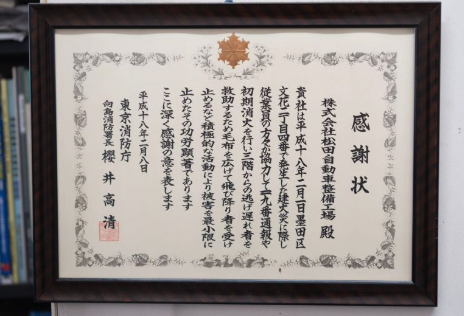 感謝状
株式会社松田自動車整備工場 殿
貴社は平成十八年二月一日墨田区
文花二丁目四番で発生した建火災に際し
従業員の方々が協力して一一九番通報や
初期消火を行い三階からの逃げ遅れ者を
救助するため毛布を広げて飛び降り者を受け
止めるなど積極的な活動により被害を最小限に
止めたその功労顕著であります
ここに深く感謝の意を表します
平成十八年二月八日
東京消防庁
向島消防署長 櫻井高清